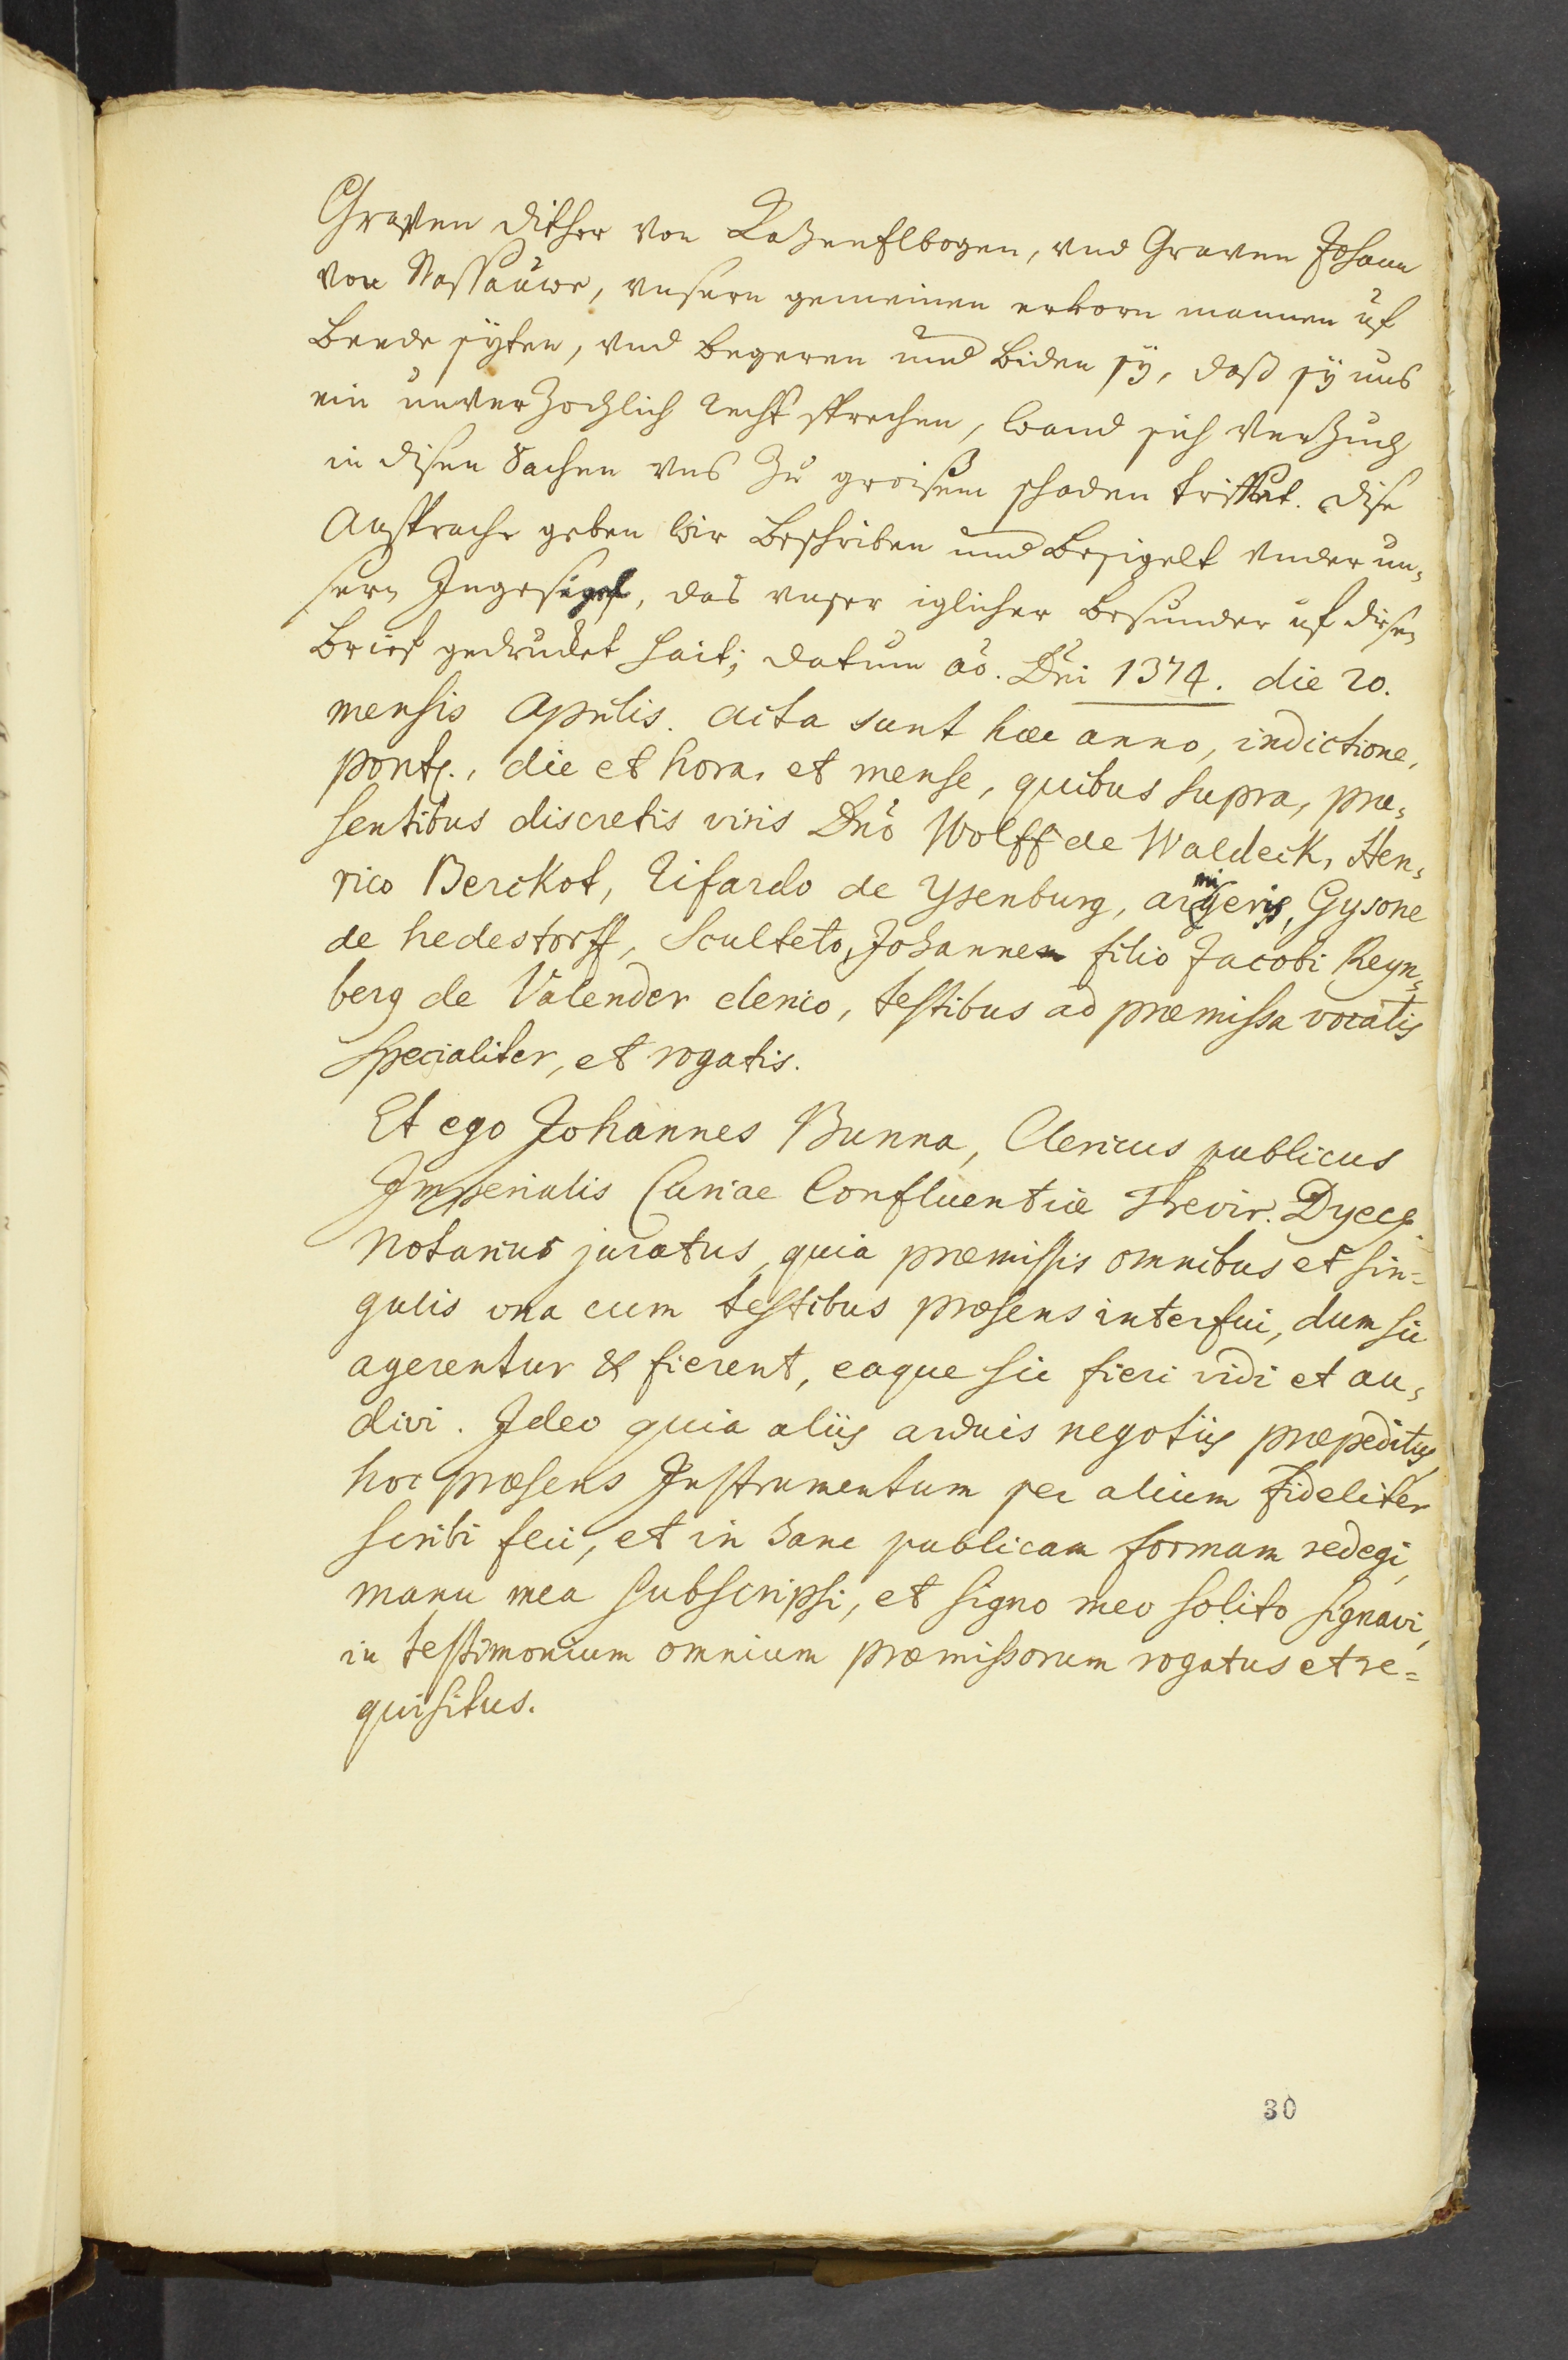 Graven Dither von Katzenelbogen, vnd Graven Johann
von Nassauwe, vnsern gemeinen erkorn mannen uf
beede syten, vnd begeren und biden sÿ, daß sÿ uns
ein unverzochlich recht sprechen, wand sich verzuch
in disen Sachen vns zu groisem schaden triffet. dise
Ansprache geben wir beschriben und besigelt vnder un¬
sern Ingesigel, das vnser iglicher besunder uf disen
brief gedrucket hait; datum ao. Dni 1374. die 20.
mensis Aprilis. Acta sunt haec anno, indictione,
pontf., die et hora, et mense, quibus supra, prae¬
sentibus discretis viris Dno Wolff de Waldeck, Hen¬
rico Berckot, Rifardo de Ysenburg, armigeris, Gysone
de hedestorff, Sculteto, Johanne filio Jacobi Reyn¬
berg de Valender clerico, testibus ad praemissa vocatis
specialiter, et rogatis.
Et ego Johannes Bunna, Clericus publicus
Imperialis Curiae Confluentiae Trevir. Dyecs.
Notarius juratus, quia praemissis omnibus et sin=
gulis vna cum testibus praesens interfui, dum sic
agerentur & fierent, eaque sic fieri vidi et au¬
divi. Ideo quia aliis arduis negotiis praepeditus,
hoc praesens Instrumentum per alium fideliter
scribi feci, et in hanc publicam formam redegi,
manu mea subscripsi, et signo meo solito signavi,
in testimonium omnium praemissorum rogatus et re=
quisitus.
30